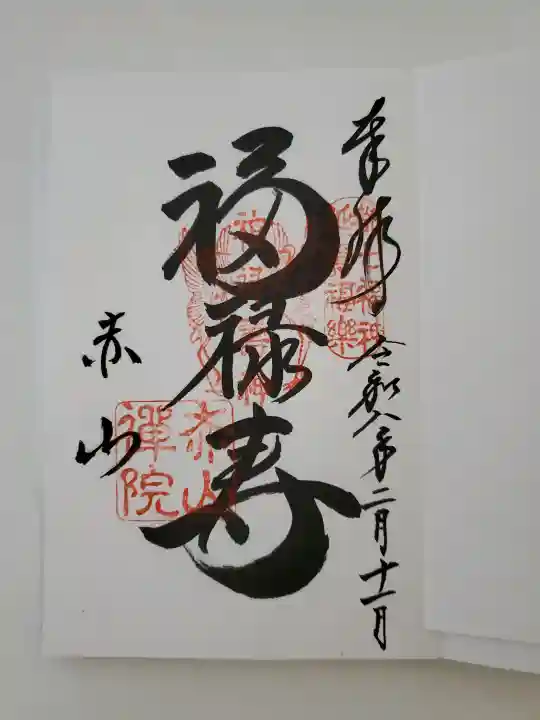 奉拝
令和八年二月十一日
福禄寿
赤山
赤山
禪院